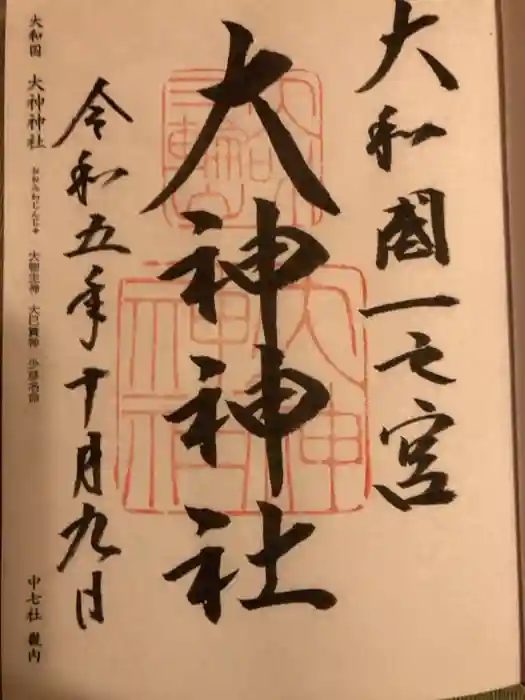 大和國一之宮
大神神社
令和五年十月九日
大和国 大神神社 おおみわじんじゃ 大物主神 大己貴神 少彦名命 中七社 畿内
大神神社